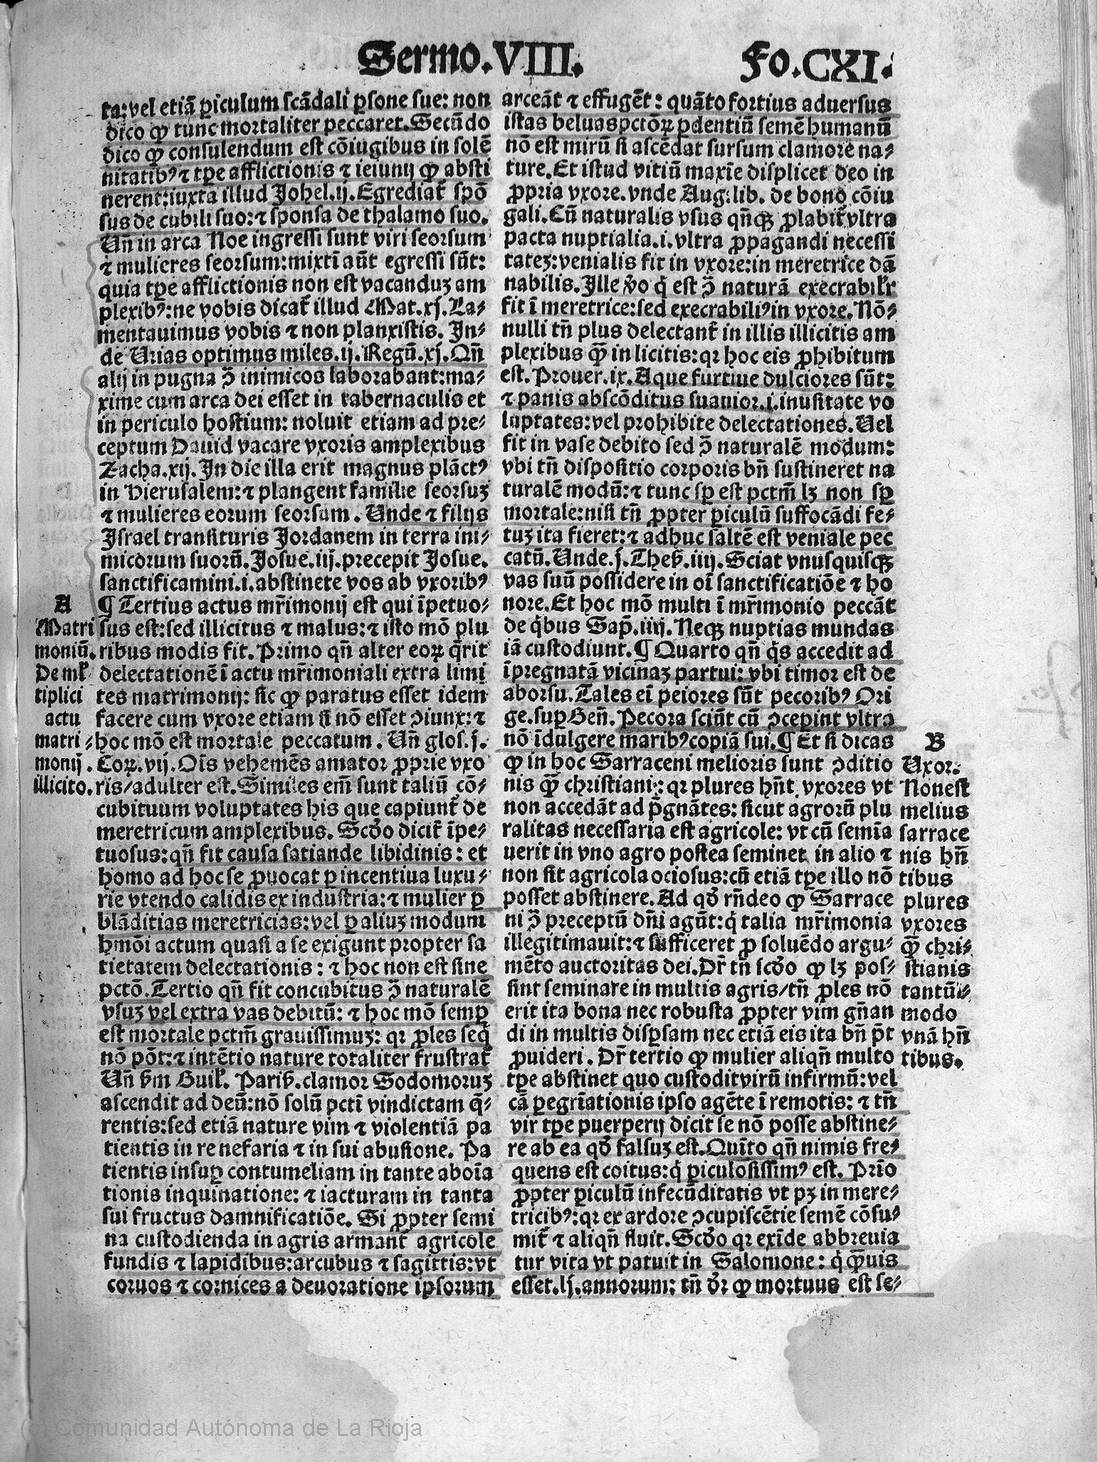 Sermo.VIII.
Fo.CXI.
ta:vel etiã ꝑiculum scãdali ꝑsone sue: non
dico ꝙ tunc mortaliter peccaret. Secũdo
dico ꝙ consulendum est cõiugibus in solẽ
nitatibꝰ ⁊ tꝑe afflictionis ⁊ ieiunij ꝙ absti
nerent:iuxta illud Johel.ij. Egrediat̃ spõ
sus de cubili suo:⁊ sponsa de thalamo suo.
Uñ in arca Noe ingressi sunt viri seorsum
⁊ mulieres seorsum:mixti aũt egressi sũt:
quia tꝑe afflictionis non est vacanduȝ am
plexibꝰ:ne vobis dicat̃ illud Mat.xj. La⸗
mentauimus vobis ⁊ non planxistis. In⸗
de Urias optimus miles.ij. Regũ.xj. Qñ
alij in pugna ꝯ̃ inimicos laborabant:ma⸗
xime cum arca dei esset in tabernaculis et
in periculo hostium: noluit etiam ad pre⸗
ceptum Dauid vacare vxoris amplexibus
Zacha.xij. In die illa erit magnus plãctꝰ
in Hierusalem:⁊ plangent familie seorsuȝ
⁊ mulieres eorum seorsum. Unde ⁊ filijs
Israel transituris Jordanem in terra ini⸗
micorum suorũ. Josue.iij. precepit Josue.
sanctificamini.i.abstinete vos ab vxoribꝰ
¶ Tertius actus mr̃imonij est qui ĩpetuo⸗
sus est:sed illicitus ⁊ malus:⁊ isto mõ plu
ribus modis fit. Primo qñ alter eoꝝ q̃rit
delectationẽ ĩ actu mr̃imoniali extra limi
tes matrimonij: sic ꝙ paratus esset idem
facere cum vxore etiam si nõ esset ꝯiunx:⁊
hoc mõ est mortale peccatum. Uñ glos.j.
Coꝝ.vij. Oĩs vehemẽs amator ꝓprie vxo
ris/adulter est. Similes em̃ sunt taliũ cõ⸗
cubituum voluptates his que capiunt̃ de
meretricum amplexibus. Scðo dicit̃ ĩpe⸗
tuosus:qñ fit causa satiande libidinis: et
homo ad hoc se ꝓuocat ꝑ incentiua luxu⸗
rie vtendo calidis ex industria:⁊ mulier ꝑ
blãditias meretricias:vel ꝑ aliuȝ modum
hm̃õi actum quasi a se exigunt propter sa
tietatem delectationis: ⁊ hoc non est sine
pctõ. Tertio qñ fit concubitus ꝯ̃ naturalẽ
vsuȝ vel extra vas debitũ: ⁊ hoc mõ semꝑ
est mortale pctm̃ grauissimuȝ: qꝛ ꝓles seq̃
nõ põt:⁊ intẽtio nature totaliter frustrat̃
Uñ ẞm Guil̃. Pariẞ. clamor Sodomoruȝ
ascendit ad deũ:nõ solũ pcti vindictam q̃⸗
rentis:sed etiã nature vim ⁊ violentiã pa
tientis in re nefaria ⁊ in sui abusione. Pa
tientis insuꝑ contumeliam in tante aboĩa
tionis inquinatione: ⁊ iacturam in tanta
sui fructus damnificatiõe. Si ꝓpter semi
na custodienda in agris armant̃ agricole
fundis ⁊ lapidibus:arcubus ⁊ sagittis:vt
coruos ⁊ cornices a deuoratione ipsorum
A
Matri
moniũ.
De ml̃
tiplici
actu
matri⸗
monij.
illicito.
arceãt ⁊ effugẽt: quãto fortius aduersus
istas beluas pctõꝝ ꝑdentiũ semẽ humanũ
nõ est mirũ si ascẽdat sursum clamore na⸗
ture. Et istud vitiũ maxĩe displicet deo in
ꝓpria vxore. vnde Aug.lib. de bono cõiu
gali. Cũ naturalis vsus qñqꝫ ꝓlabit̃ vltra
pacta nuptialia.i.vltra ꝓpagandi necessi
tateȝ:venialis fit in vxore:in meretrice dã
nabilis. Ille ꝟo q̃ est ꝯ̃ naturã execrabilr̃
fit ĩ meretrice:sed execrabiliꝰ in vxore. Nõ⸗
nulli tñ plus delectant̃ in illis illicitis am
plexibus ꝙ̃ in licitis:qꝛ hoc eis ꝓhibitum
est. Prouer.ix. Aque furtiue dulciores sũt:
⁊ panis abscõditus suauior.i.inusitate vo
luptates:vel prohibite delectationes. Uel
fit in vase debito sed ꝯ̃ naturalẽ modum:
vbi tñ dispositio corporis bñ sustineret na
turalẽ modũ:⁊ tunc sꝑ est pctm̃ lꝫ non sꝑ
mortale:nisi tñ ꝓpter ꝑiculũ suffocãdi fe⸗
tuȝ ita fieret:⁊ adhuc saltẽ est veniale pec
catũ. Unde.j. Theẞ.iiij. Sciat vnusquisqꝫ
vas suũ possidere in oĩ sanctificatiõe ⁊ ho
nore. Et hoc mõ multi ĩ mr̃imonio peccãt
de q̃bus Sap̃.iiij. Neqꝫ nuptias mundas
iã custodiunt. ¶ Quarto qñ q̃s accedit ad
ĩpregnatã vicinaȝ partui: vbi timor est de
aborsu. Tales ei peiores sũt pecoribꝰ Ori
ge.sup Geñ. Pecora sciũt cũ ꝯceperint vltra
nõ ĩdulgere maribꝰ copiã sui. ¶ Et si dicas
ꝙ in hoc Sarraceni melioris sunt ꝯditio
nis ꝙ̃ christiani: qꝛ plures hñt vxores vt
non accedãt ad p̃gnãtes: sicut agrorũ plu
ralitas necessaria est agricole: vt cũ semĩa
uerit in vno agro postea seminet in alio ⁊
non sit agricola ociosus:cũ etiã tꝑe illo nõ
posset abstinere. Ad qð rñdeo ꝙ Sarrace
ni ꝯ̃ preceptũ dñi agũt:q̃ talia mr̃imonia
illegitimauit:⁊ sufficeret ꝓ soluẽdo argu⸗
mẽto auctoritas dei. Dr̃ tñ scðo ꝙ lꝫ pos⸗
sint seminare in multis agris/tñ ꝓles nõ
erit ita bona nec robusta ꝓpter vim gñan
di in multis disꝑsam nec etiã eis ita bñ p̃t
ꝓuideri. Dr̃ tertio ꝙ mulier aliqñ multo
tꝑe abstinet quo custodit virũ infirmũ:vel
cã ꝑegrĩationis ipso agẽte ĩ remotis: ⁊ tñ
vir tꝑe puerperij dicit se nõ posse abstine⸗
re ab ea qð falsuȝ est. Quĩto qñ nimis fre⸗
quens est coitus:q̃ ꝑiculosissimꝰ est. Prĩo
ꝓpter ꝑiculũ infecũditatis vt pȝ in mere⸗
tricibꝰ:qꝛ ex ardore ꝯcupiscẽtie semẽ cõsu⸗
mit̃ ⁊ aliqñ fluit. Scðo qꝛ exĩde abbreuia
tur vita vt patuit in Salomone: q̃ ꝙ̃uis
esset.lj.annorum: tñ ðr ꝙ mortuus est se⸗
B
Uxor.
Non est
melius
sarrace
nis hñ
tibus
plures
vxores
ꝙ̃ chri⸗
stianis
tantũ
modo
vnã hñ
tibus.
Comunidad Autónoma de La Rioja